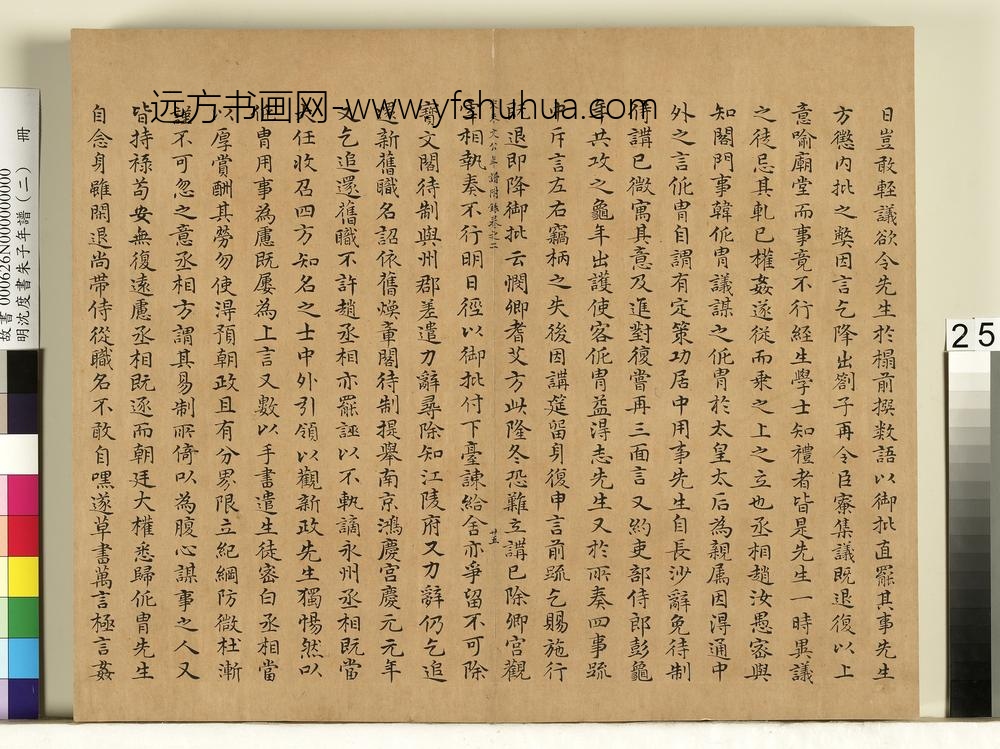 日豈敢輕議欲令先生於榻前撰数語以御批直罷其事先生
方懲内批之獘因言乞降出劄子再令臣寮集議既退復以上
意喻廟堂而事竟不行經生學士知禮者皆是先生一時異議
之徒忌其軋已權姦遂從而乗之上之立也丞相趙汝愚密與
知閤門事韓侂胄議謀之侂胄於太皇太后為親属因淂通中
外之言侂胄自謂有定策功居中用事先生自長沙辭免待制
侍講已微寓其意及進對復嘗再三面言又約吏部侍郎彭龜
年共攻之龜年出護使客侂胄益得志先生又於所奏四事疏
中斥言左右竊柄之失後因講筵留身復申言前疏乞賜施行
既退即降御批云憫卿耆艾方此隆冬恐難立講已除卿宫觀
朱文公年譜附錄卷之二
宰相執奏不行明日徑以御批付下臺諌給舎亦爭留不可除
寶文閣待制與州郡差遣力辭尋除知江陵府又力辭仍乞追
還新舊職名詔依舊煥章閣待制提舉南京鴻慶宫慶元元年
又乞追還舊職不許趙丞相亦罷誣以不軌謫永州丞相既當
大任收召四方知名之士中外引領以觀新政先生獨惕然以
侂胄用事為慮既屢為上言又數以手書遣生徒密白丞相當
以厚賞酬其勞勿使淂預朝政且有分界限立紀綱防微杜漸
謹不可忽之意丞相方謂其易制所倚以為腹心謀事之人又
皆持祿苟安無復遠慮丞相既逐而朝廷大權悉歸侂胄先生
自念身雖閑退尚帶侍從職名不敢自嘿遂草書萬言極言姦
远方书画网-www.yfshuhua.com
故書 000626N000000000
明沈度書朱子年譜(二) 冊
25